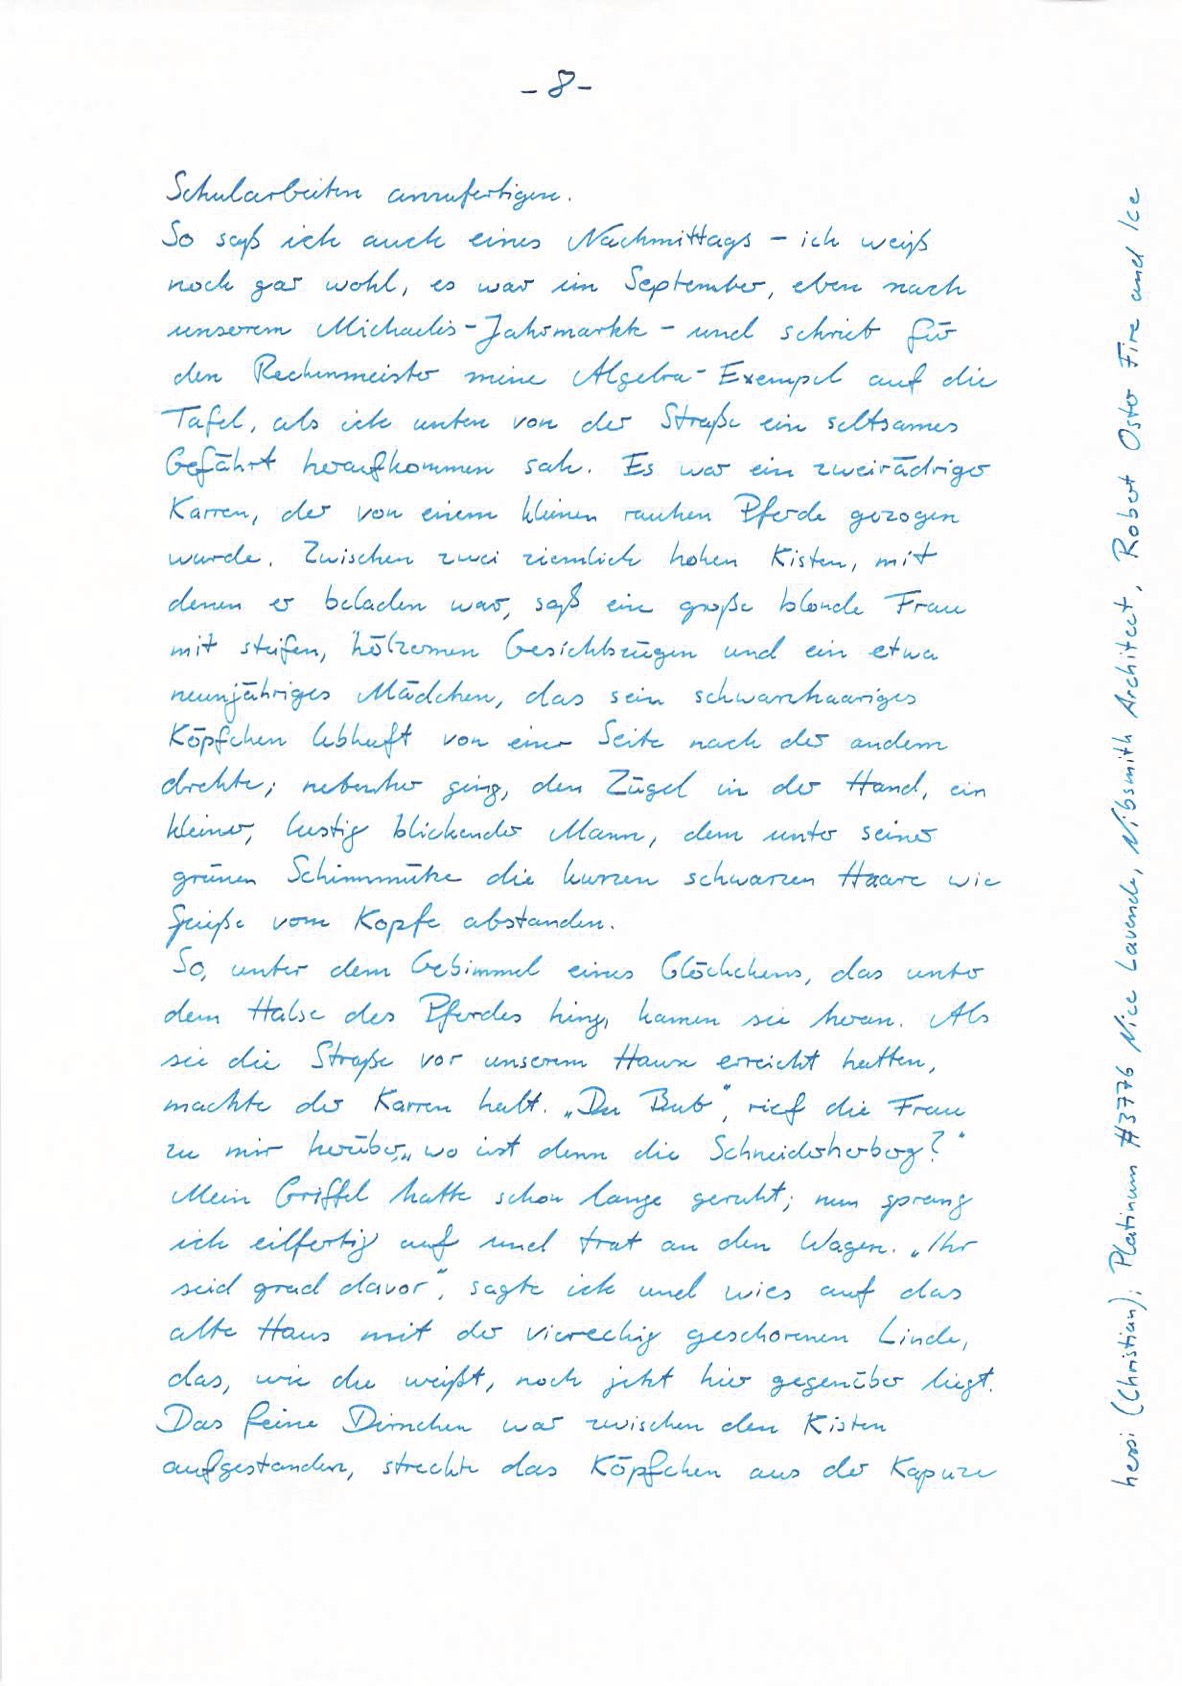 -8-
Schularbeiten anzufertigen.
So saß ich auch eines Nachmittags – ich weiß
noch gar wohl, es war im September, eben nach
unserem Michaelis-Jahrmarkte – und schrieb für
den Rechenmeister meine Algebra-Exempel auf die
Tafel, als ich unten von der Straße ein seltsames
Gefährt heraufkommen sah. Es war ein zweirädriger
Karren, der von einem kleinen rauhen Pferde gezogen
wurde. Zwischen zwei ziemlich hohen Kisten, mit
denen er beladen war, saß eine große blonde Frau
mit steifen, hölzernen Gesichtszügen und ein etwa
neunjähriges Mädchen, das sein schwarzhaariges
Köpfchen lebhaft von einer Seite nach der andern
drehte; nebenher ging, den Zügel in der Hand, ein
kleiner, lustig blickender Mann, dem unter seiner
grünen Schirmmütze die kurzen schwarzen Haare wie
Spieße vom Kopfe abstanden.
So, unter dem Gebimmel eines Glöckchens, das unter
dem Halse des Pferdes hing, kamen sie heran. Als
sie die Straße vor unserem Hause erreicht hatten,
machte der Karren halt. „Du Bub“, rief die Frau
zu mir herüber, „wo ist denn die Schneiderherberg?“
Mein Griffel hatte schon lange geruht; nun sprang
ich eilfertig auf und trat an den Wagen. „Ihr
seid grad davor“, sagte ich und wies auf das
alte Haus mit der viereckig geschorenen Linde,
das, wie du weißt, noch jetzt hier gegenüber liegt.
Das feine Dirnchen war zwischen den Kisten
aufgestanden, streckte das Köpfchen aus der Kapuze
hessi (Christian); Platinum #3776 Nice Lavende, Nibsmith Architect, Robert Oster Fire and Ice